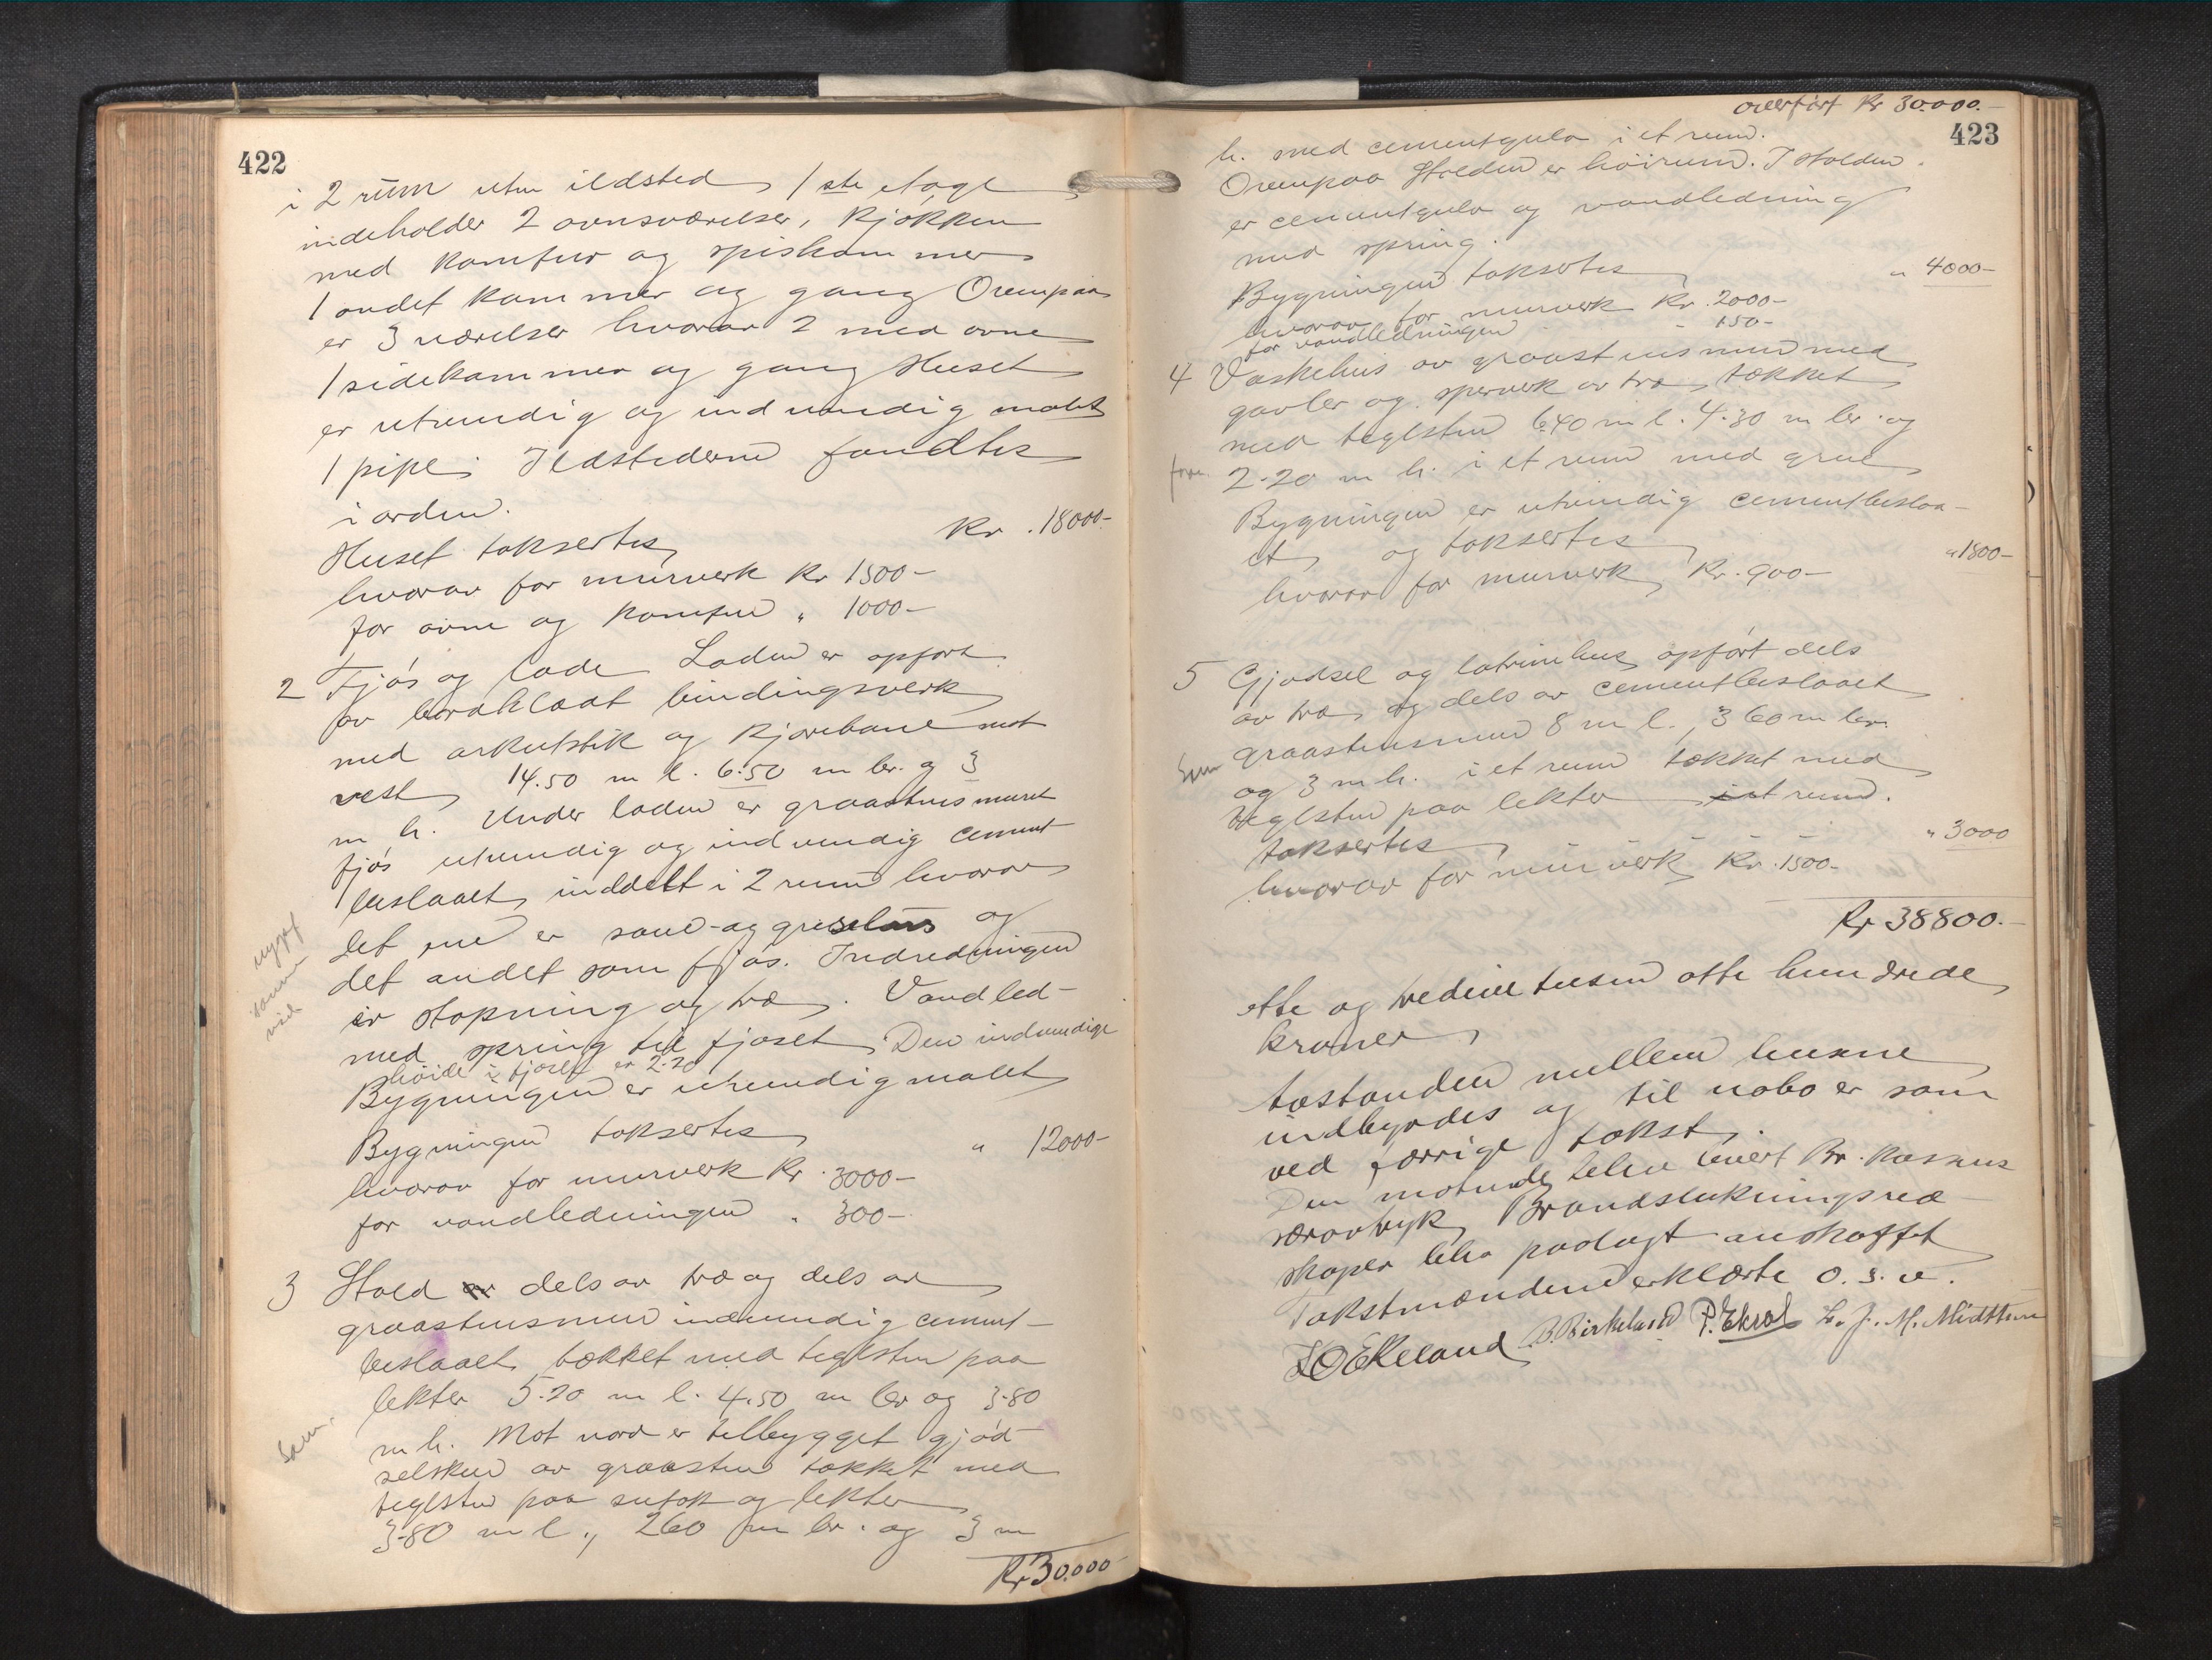 422
i 2 rum uten ildsted, 1ste etage
indeholder 2 ovnsværelser, kjøkken
med komfur og spiskammer
1 andet kammer og gang Ovenpaa
er 3 værelser hvorav 2 med ovne
1 sidekammer og gang Huset
er utvendig og indvendig malet
1 pipe. Ildstederne fandtes
i orden.
Huset taksertes Kr. 18000-
hvorav for murverk Kr 1500-
for ovne og komfur " 1000-
2 Fjøs og lade Laden er opført
av bordklædt bindingsverk
med arkutstik og kjørebane mot
vest, 14.50 m l. 6.50 m br. og 3
m h. Under laden er graastensmuret
fjøs utvendig og indvendig cement-
beslaaet, inddelt i 2 rum hvorav
det ene er saue- og grisehus og
det andet som fjøs. Indredningen
er støpning og træ. Vandled-
med spring til fjøset, Den indvendige
høide i fjøset er 2.20
Bygningen er utvendig malet
Bygningen taksertes " 12000-
hvorav for murverk Kr. 3000-
for vandledningen " 300-
3 Stald dels av træ og dels av
graastensmur indvendig cement-
beslaaet, tækket med teglsten paa
lekter 5.20 m l. 4.50 m br og 3.80
Sam.
m h. Mot nord er tilbygget gjød-
selskur av graasten tækket med
teglsten paa sutak og lekter
3.80 m l., 2 60 m br. og 3 m
Kr 30.000-
overført Kr 30.000.-
423
h. med cementgulv i et rum.
Ovenpaa Stalden er høirum. I Stalden
er cementgulv og vandledning
med spring.
Bygningen taksertes " 4000-
hvorav for murverk Kr. 2000-
for vandledningen - 150-
4 Vaskehus av graastensmur med
gavler og sperverk av træ, tækket
med teglsten 6.40 m l. 4.30 m br. og
2.20 m h. i et rum med grue
Bygningen er utvendig cementbeslaa-
et, og taksertes " 1800-
hvorav for murverk Kr. 900-
5 Gjødsel og latrinhus opført dels
av træ og dels av cementbeslaaet
graastensmur 8 m l., 3 60 m br.
Sam
og 3 m h. i et rum tækket med
teglsten paa lekter i et rum.
taksertes " 3000
hvorav for murverk Kr. 1500-
Kr 38800.-
otte og tredive tusen otte hundrede
kroner,
Avstanden mellem husene
indbyrdes og til nabo er som
ved forrige takst.
Den motunde blev levert Br. kassens
særavtryk, Brandslukningsred
skaper blev paalagt anskaffet
Takstmændene erklærte o.s.v.
J O Ekeland B. Birkeland P. Ekrol L. J. M. Midttun